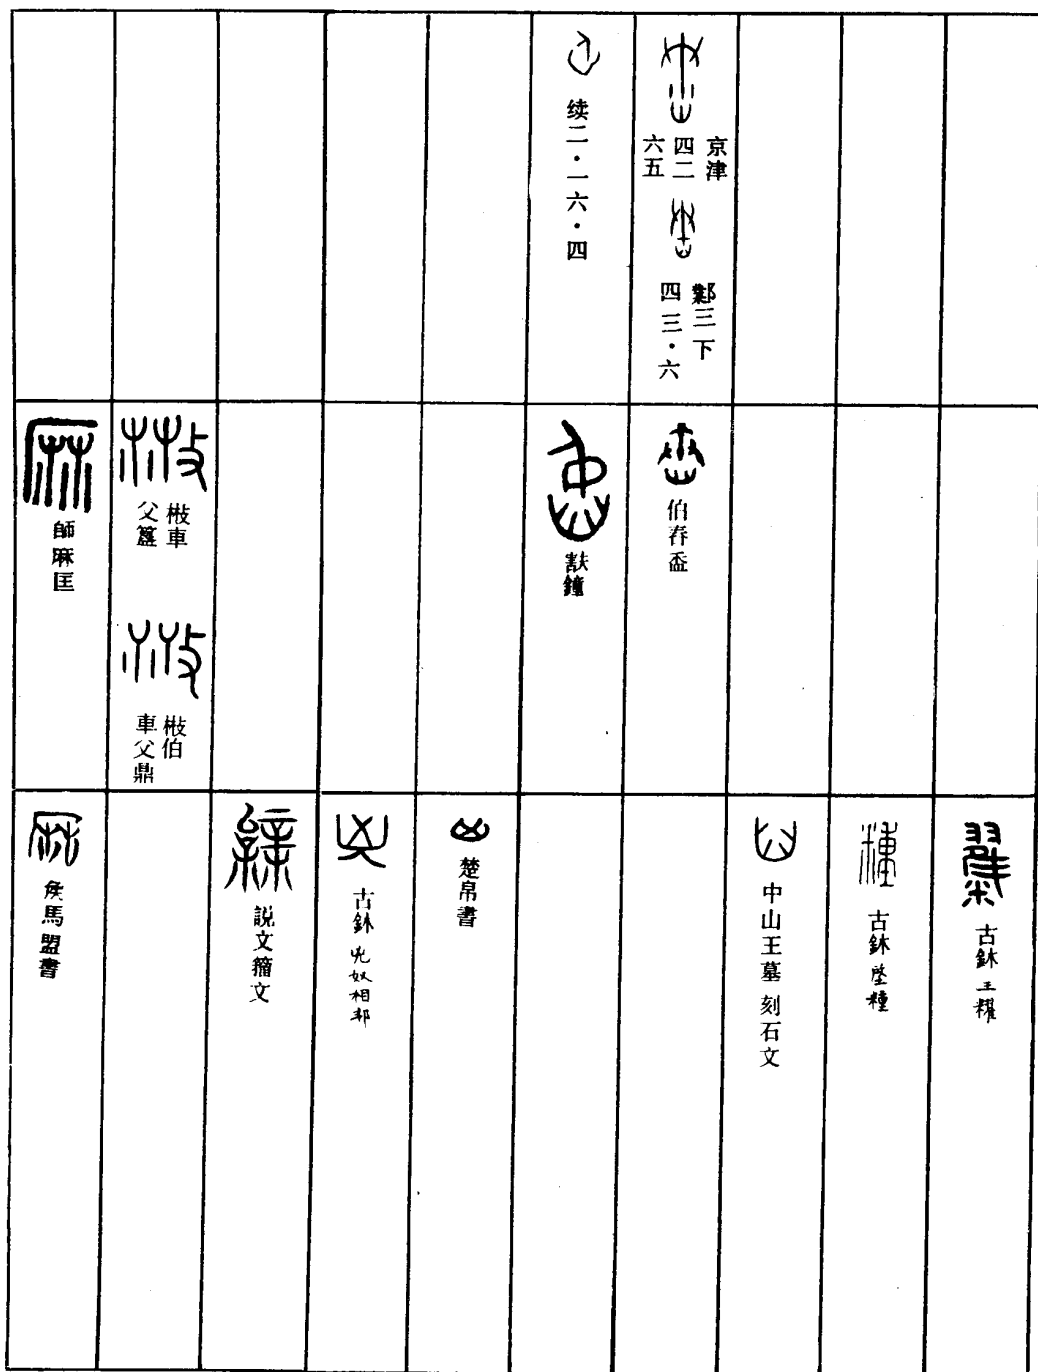 京津
四二
六五
鄴三下
四三·六
续二·一六·四
伯舂盉
㝬鐘
㪔車
父簋
㪔伯
車父鼎
師麻匡
古鉨 王糴
古鉨
中山王墓刻石文
楚帛書
古鉨 兇奴相邦
説文籀文
侯馬盟書